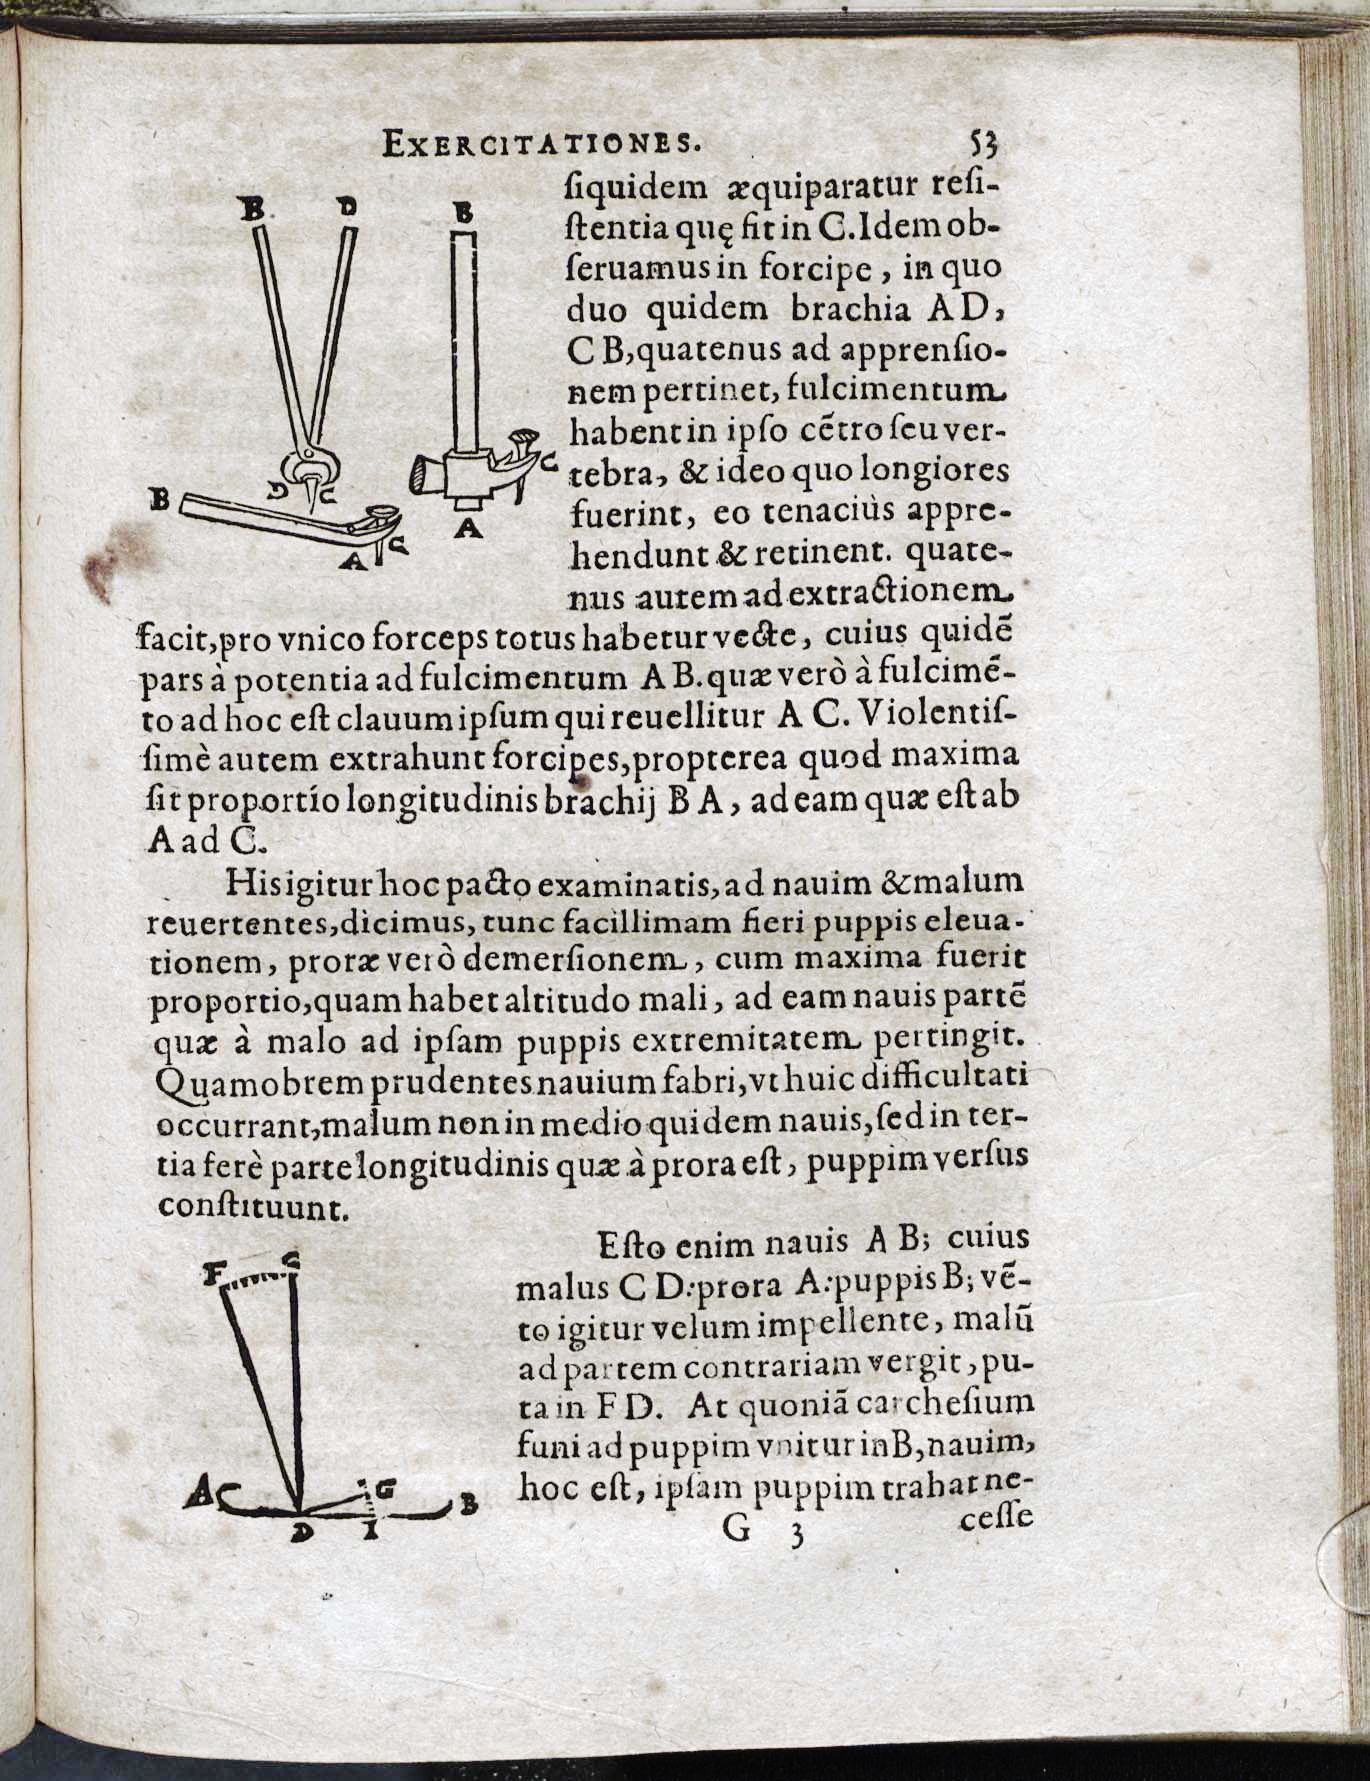 EXERCITATIONES. 53
ſiquidem æquiparatur reſi-
ſtentia quę fit in C. Idem ob-
ſeruamus in forcipe, in quo
duo quidem brachia A D,
C B, quatenus ad apprenſio-
nem pertinet, fulcimentum
habent in ipſo cẽtro ſeu ver-
tebra, & ideo quo longiores
fuerint, eo tenaciùs appre-
hendunt & retinent. quate-
nus autem ad extractionem
facit, pro vnico forceps totus habetur vecte, cuius quidẽ
pars à potentia ad fulcimentum A B. quæ verò à fulcimẽ-
to ad hoc eſt clauum ipſum qui reuellitur A C. Violentiſ-
ſimè autem extrahunt forcipes, propterea quod maxima
ſit proportio longitudinis brachij B A, ad eam quæ eſt ab
A ad C.
His igitur hoc pacto examinatis, ad nauim & malum
reuertentes, dicimus, tunc facillimam fieri puppis eleua-
tionem, proræ verò demerſionem, cum maxima fuerit
proportio, quam habet altitudo mali, ad eam nauis partẽ
quæ à malo ad ipſam puppis extremitatem pertingit.
Quamobrem prudentes nauium fabri, vt huic difficultati
occurrant, malum non in medio quidem nauis, ſed in ter-
tia ferè parte longitudinis quæ à prora eſt, puppim verſus
conſtituunt.
Eſto enim nauis A B; cuius
malus C D: prora A: puppis B; vẽ-
to igitur velum impellente, malũ
ad partem contrariam vergit, pu-
ta in F D. At quoniã carcheſium
funi ad puppim vnitur in B, nauim,
hoc eſt, ipſam puppim trahat ne-
G 3 ceſſe
B D B
D C C
B A
A C
F C
A G B
D I